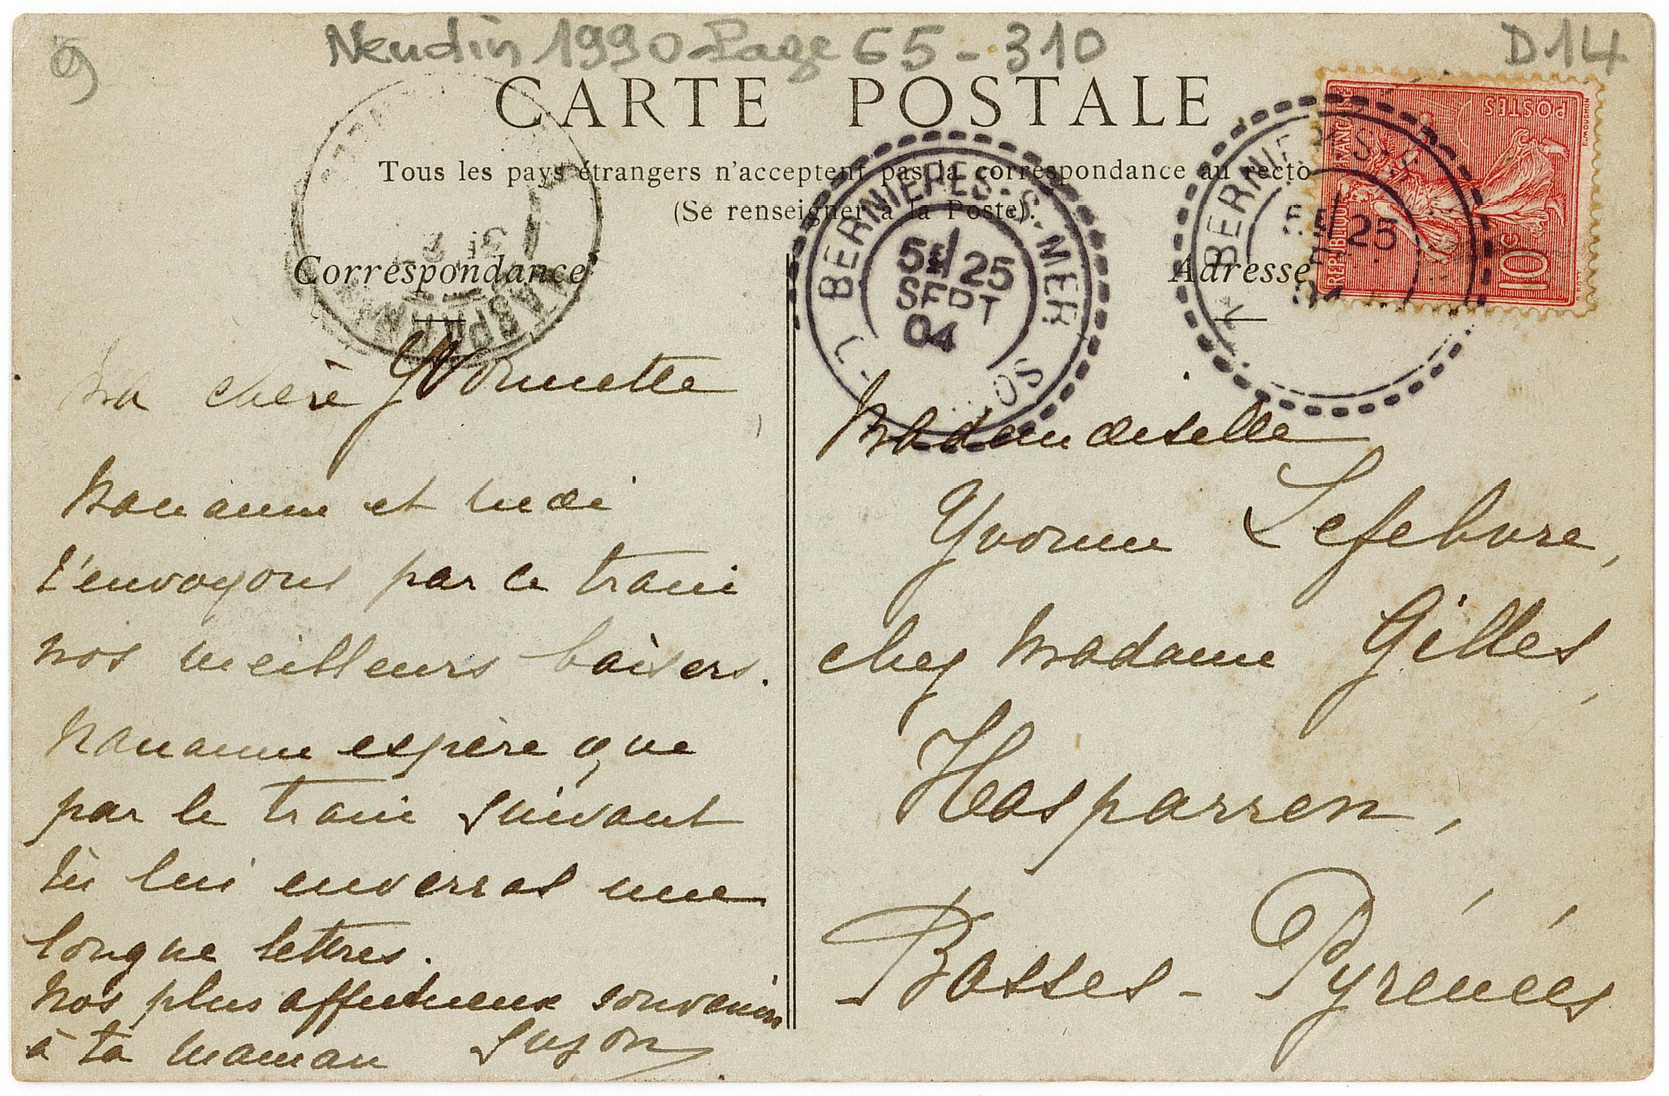 Neudin 1990-Page 65-310
D14
CARTE POSTALE
Tous les pays étrangers n'acceptent pas la correspondance au recto
(Se renseigner à la Poste).
Correspondance
Adresse
BERNIERES-S-MER
5E/25
SEPT
04
BERNIERES-S-M
5E/25
04
REPUBLIQUE FRANÇAISE
POSTES
10c
HASPARREN
Ma chère Yvonnette
Maname et moi
t'envoyons par ce train
nos meilleurs baisers.
Maname espère que
par le train suivant
tu lui enverras une
longue lettres.
Nos plus affectueux souvenirs
à ta maman Suzon
Mademoiselle
Yvonne Lefebvre,
chez Madame Gilles,
Hasparren,
Basses-Pyrénées